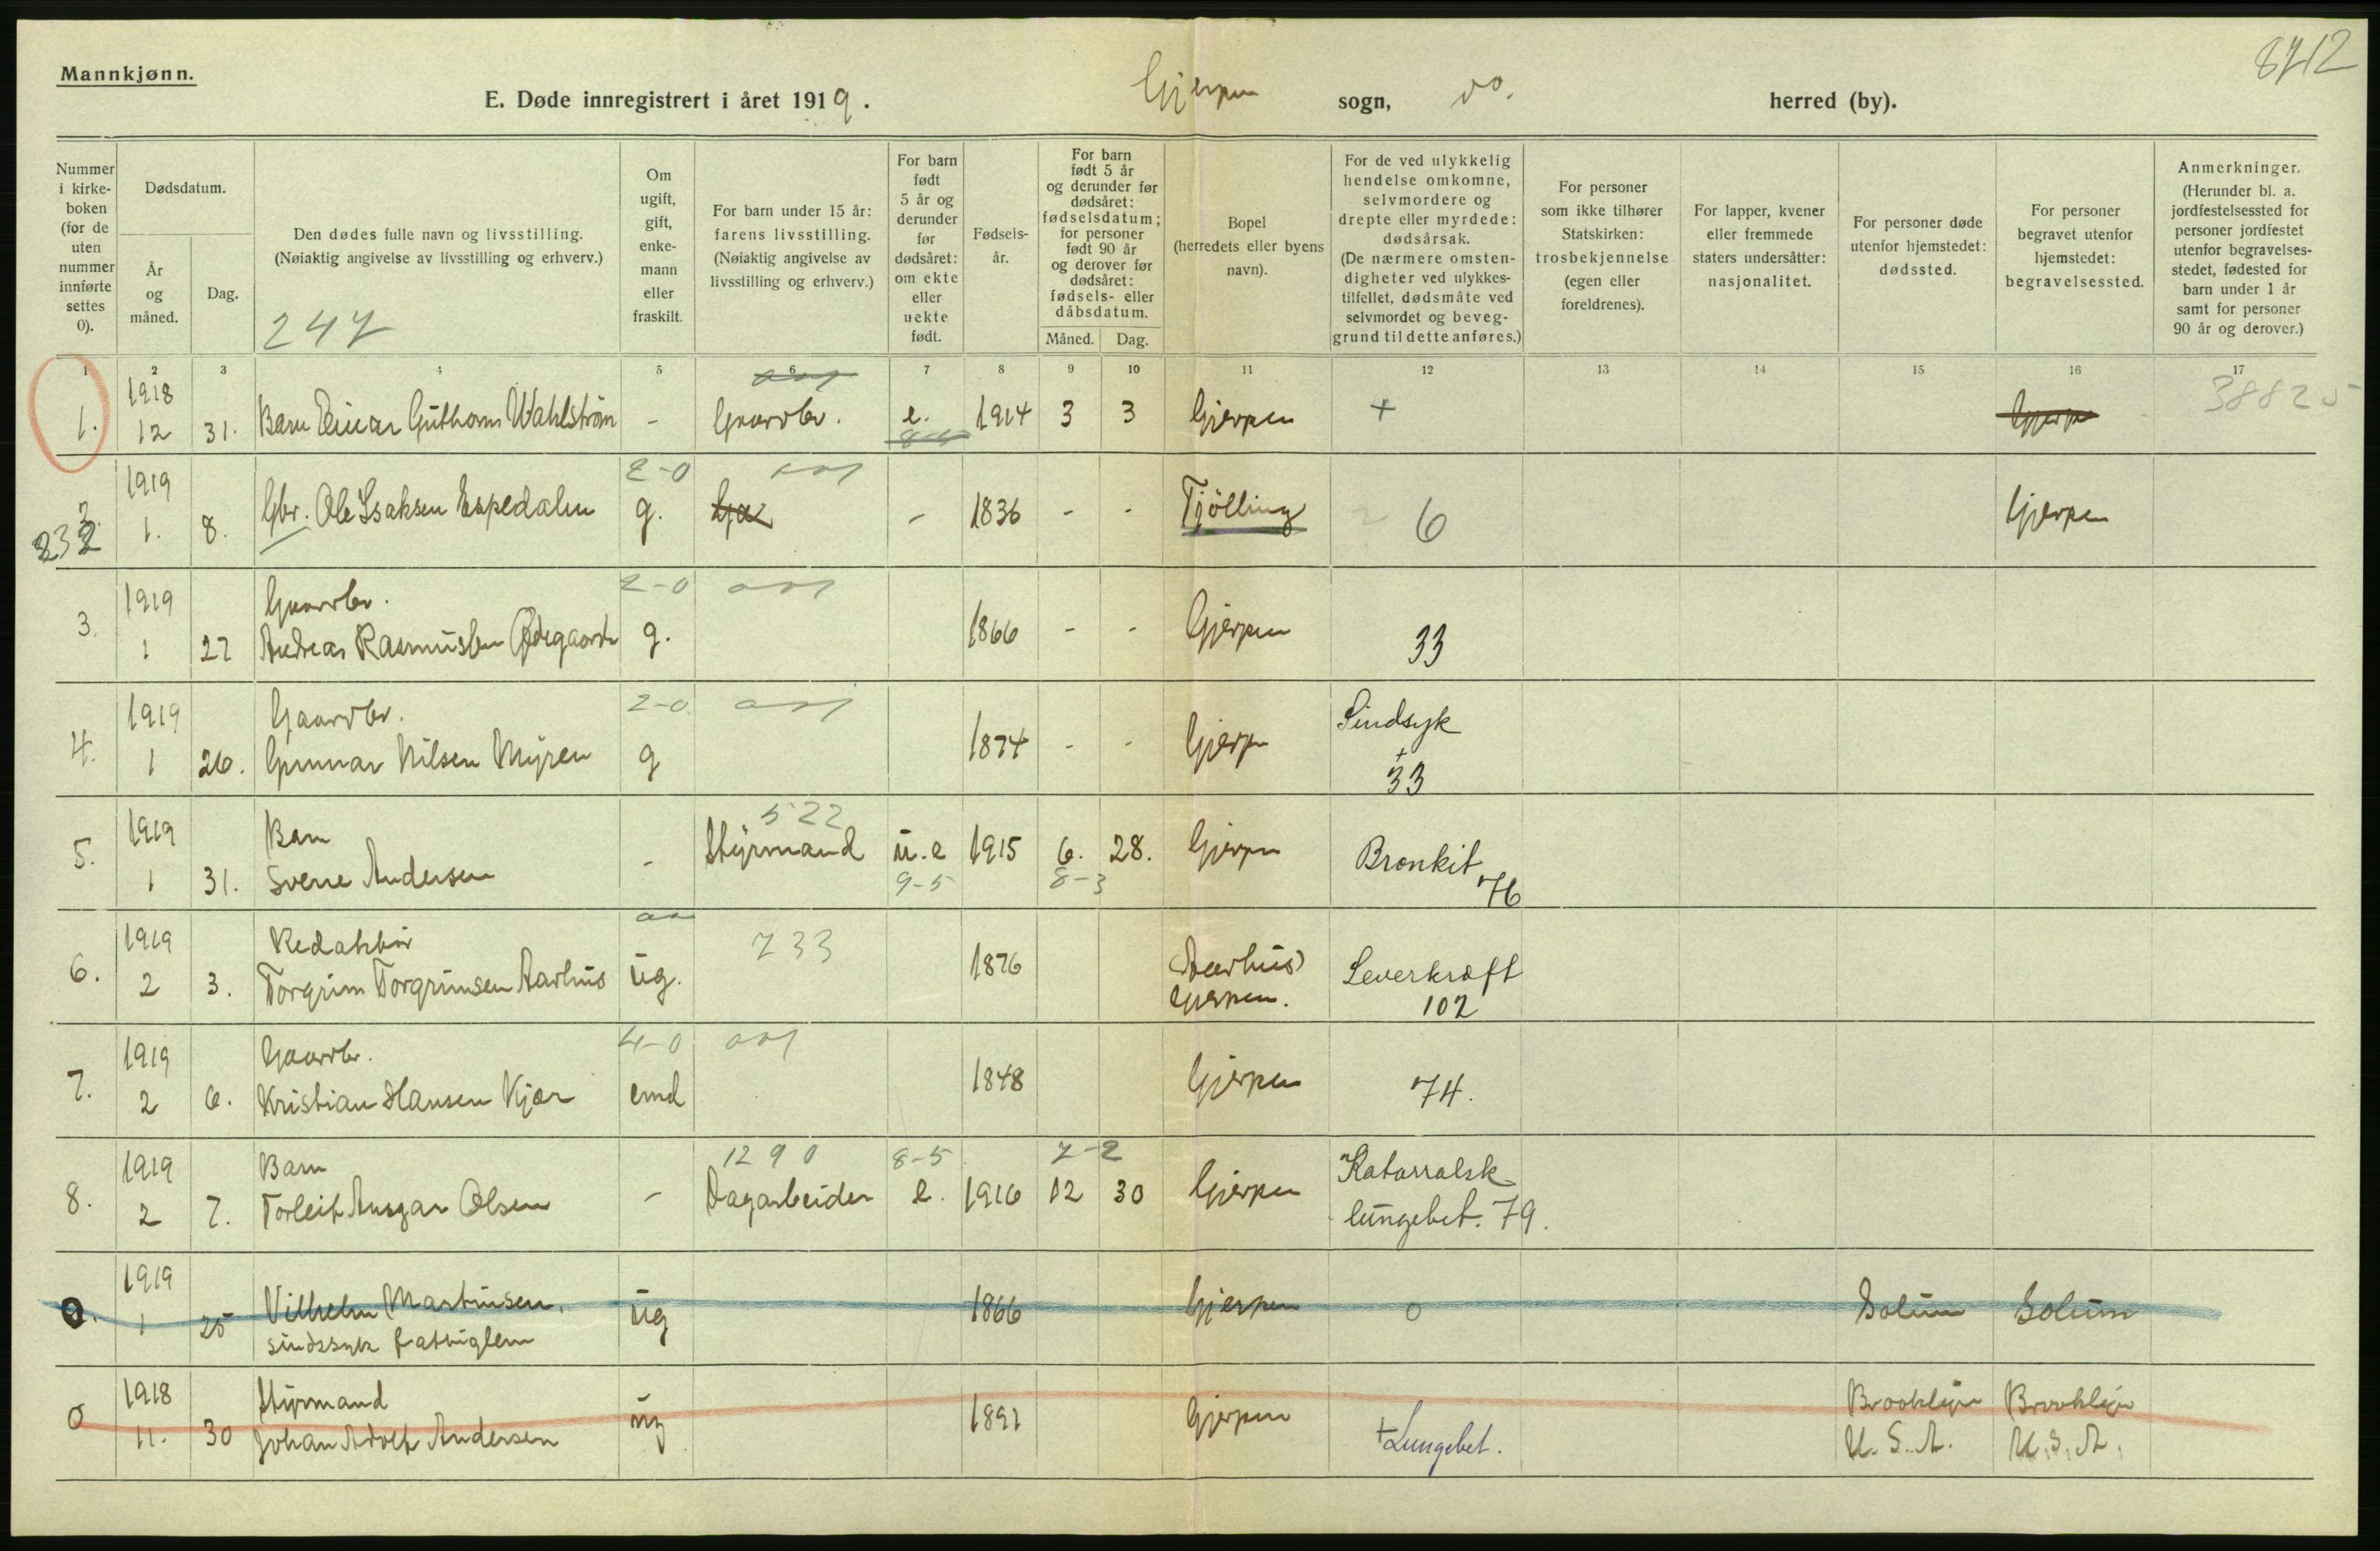 8212
Mannkjønn.
E. Døde innregistrert i året 1919. Gjerpen sogn, do. herred (by).
Nummer i kirke-boken (for de uten nummer innførte settes 0).
Dødsdatum.
År og måned.
Dag.
Den dødes fulle navn og livsstilling.
(Nøiaktig angivelse av livsstilling og erhverv.)
247
Om ugift, gift, enke-mann eller fraskilt.
For barn under 15 år: farens livsstilling.
(Nøiaktig angivelse av livsstilling og erhverv.)
For barn født 5 år og derunder før dødsåret: om ekte eller uekte født.
Fødsels-år.
For barn født 5 år og derunder før dødsåret: fødselsdatum; for personer født 90 år og derover før dødsåret: fødsels- eller dåbsdatum.
Måned. Dag.
Bopel (herredets eller byens navn).
For de ved ulykkelig hendelse omkomne, selvmordere og drepte eller myrdede: dødsårsak.
(De nærmere omsten-digheter ved ulykkes-tilfellet, dødsmåte ved selvmordet og beveg-grund til dette anføres.)
For personer som ikke tilhører Statskirken: trosbekjennelse (egen eller foreldrenes).
For lapper, kvener eller fremmede staters undersåtter: nasjonalitet.
For personer døde utenfor hjemstedet: dødssted.
For personer begravet utenfor hjemstedet: begravelsessted.
Anmerkninger.
(Herunder bl. a. jordfestelsessted for personer jordfestet utenfor begravelses-stedet, fødested for barn under 1 år samt for personer 90 år og derover.)
1 2 3 4 5 6 7 8 9 10 11 12 13 14 15 16 17
1918 38825
1. 12 31. Barn Einar Guthorm Wahlström - Gaardbr. e. 1914 3 3 Gjerpen + Gjerpe
1919 2-0
2. 1. 8. Gbr. Ole Isaksen Espedalen g. Ga - 1836 - - Tjölling 6 Gjerpen
232
1919 Gaardbr. 2-0
3. 1 27 Andreas Rasmussen Ødegaard g. 1866 - - Gjerpen 33
1919 Gaardbr. 2-0 Sindsyk
4. 1 26. Gunnar Nilsen Myren g 1874 - - Gjerpn + 33
1919 Barn 522
5. 1 31. Sverre Andersen - Styrmand u.e 1915 6. 28. Gjerpn Bronkit 76
9-5 8-3
1919 Redaktør 233
6. 2 3. Torgrim Torgrimsen Aarhus ug. 1876 (Aarhus) Gjerpen. Leverkræft 102
1919 Gaardbr. 4-0
7. 2 6. Kristian Hansen Kjær emd 1848 Gjerpen 74.
1919 Barn 1290 8-5 7-2 Katarralsk
8. 2 7. Torleif Ansgar Olsen - Dagarbeider e. 1916 12 30 Gjerpen lungebet. 79.
1919
0. 1 25 Vilhelm Martinsen, ug 1866 Gjerpen 0 Solum Solum
sindssyk fattiglem
1918 Styrmand Brooklyn Brooklyn
0 11. 30 Johan Adolf Andersen ug 1891 Gjerpen + Lungebet. U.S.A. U.S.A.